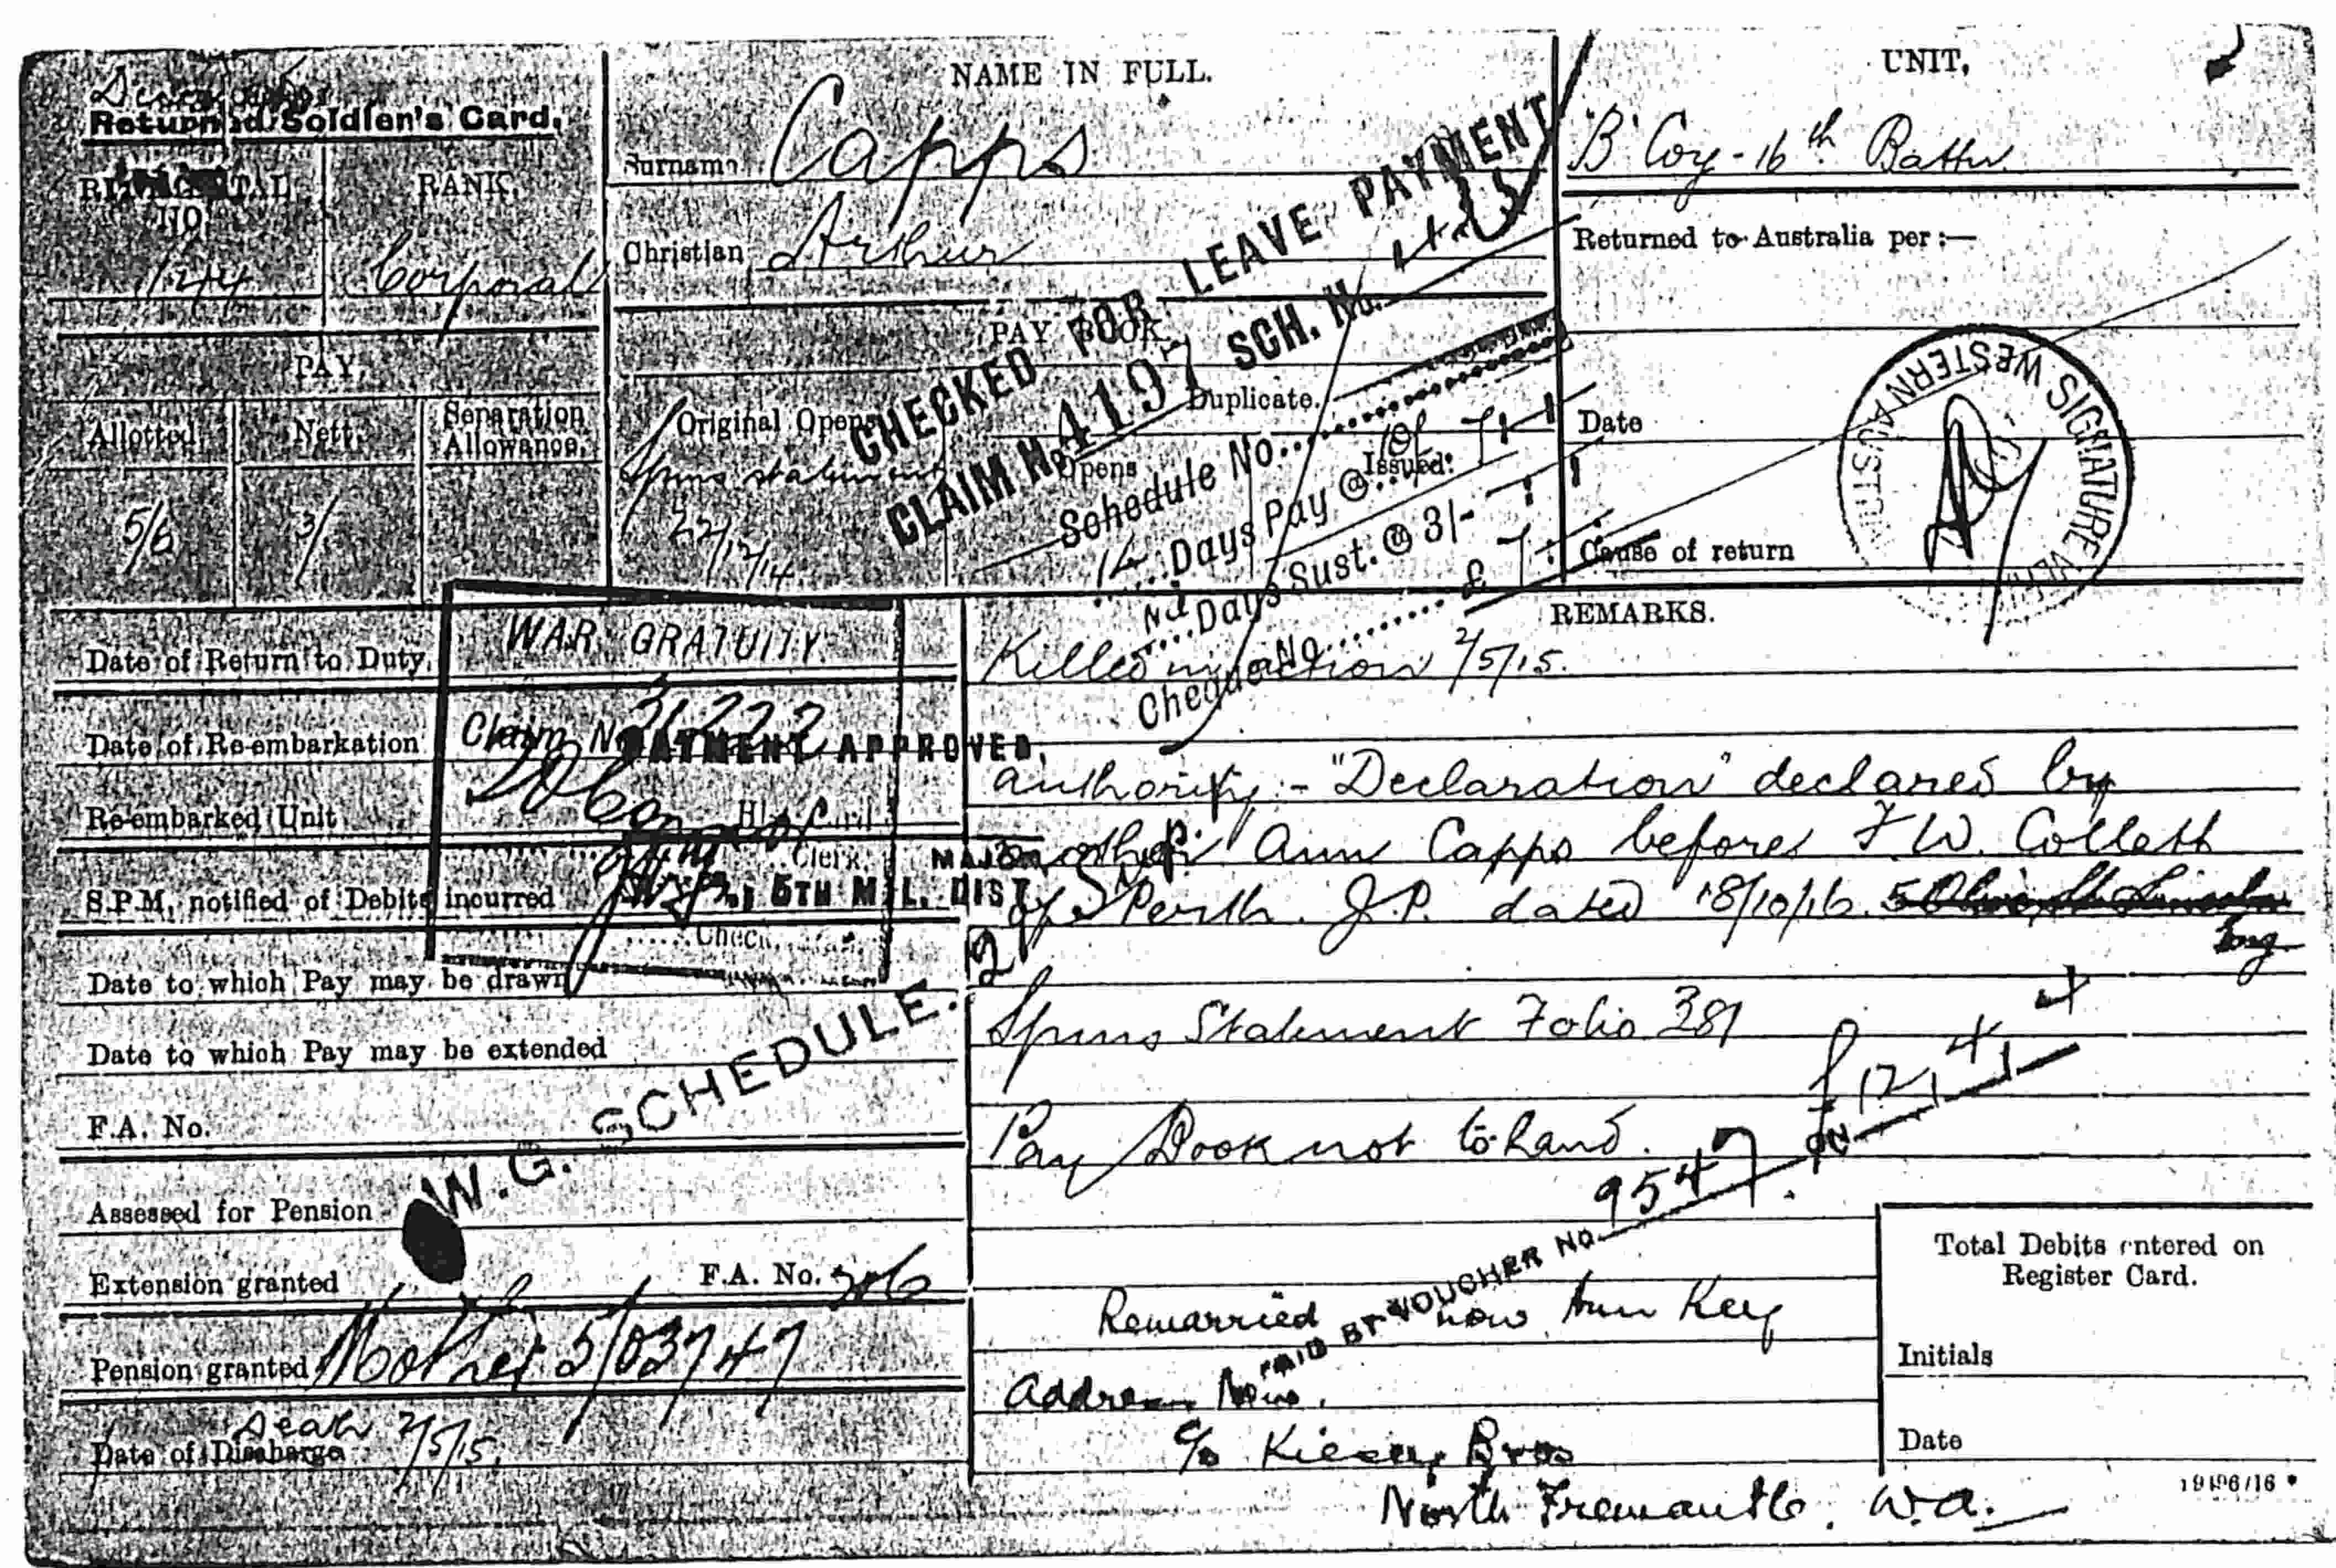 Deceased
Returned Soldier's Card.
REGIMENTAL NO.
RANK.
1244
Corporal
PAY
Allotted
Nett.
Separation Allowance.
5/6
3/
NAME IN FULL.
Surname Capps
Christian Arthur
PAY BOOK
Original Opens
Duplicate.
Opens
Issued:
statement
22/12/14
CHECKED FOR LEAVE PAYMENT
CLAIM No 4197 SCH. No.
Schedule No.
14 Days Pay @
Days Sust. @ 3/-
£
Cheque No
UNIT,
'B' Coy - 16th Battn
Returned to Australia per :—
Date
Cause of return
SIGNATURE
WESTERN AUSTRALIA
Date of Return to Duty.
Date of Re-embarkation
Re-embarked Unit
S.P.M. notified of Debits incurred
Date to which Pay may be drawn
Date to which Pay may be extended
F.A. No.
Assessed for Pension
Extension granted
F.A. No. 306
Pension granted Mother 5/03747
Death 2/5/15.
Date of Discharge
WAR GRATUITY.
Claim No 31222
PAYMENT APPROVED.
Clerk.
MAJOR,
5TH MIL. DIST.
Check
W.G. SCHEDULE.
REMARKS.
Killed in action 2/5/15.
authority :- "Declaration" declared by
mother Ann Capps before F. W. Collett
of Perth. J.P. dated 18/10/16.
Eng
Statement Folio 381
Pay Book not to hand.
£ 12, 4,
PAID BY VOUCHER NO. 9547
Remarried now Ann Key
address Now.
c/o Kiesey Bros
North Fremantle. W.A.
Total Debits entered on
Register Card.
Initials
Date